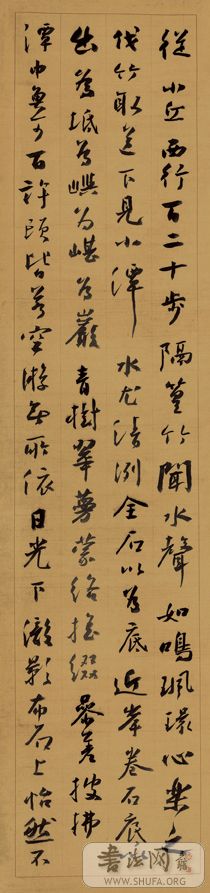 從小丘西行百二十步隔篁竹聞水聲如鳴珮環心樂之
伐竹取道下見小潭水尤清洌全石以為底近岸卷石底
出為坻為嶼為嵁為巖青樹翠蔓蒙絡搖綴參差披拂
潭中魚可百許頭皆若空游無所依日光下澈影布石上怡然不
WWW.SHUFA.ORG